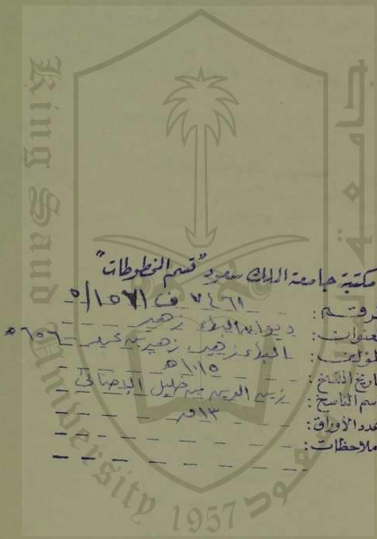 King Saud University
جامعة الملك سعود
1957
مكتبة جامعة الملك سعود "قسم المخطوطات"
الرقم: ٧٤٦١ ف ١٥٧١/٥
العنوان: ديوان البهاء زهير
المؤلف: البهاء زهير، زهير بن محمد - ٦٥٦ھ
تاريخ النسخ: ١١١٥ھ
اسم الناسخ: زين الدين بن خليل
عدد الأوراق: ١٣
ملاحظات: